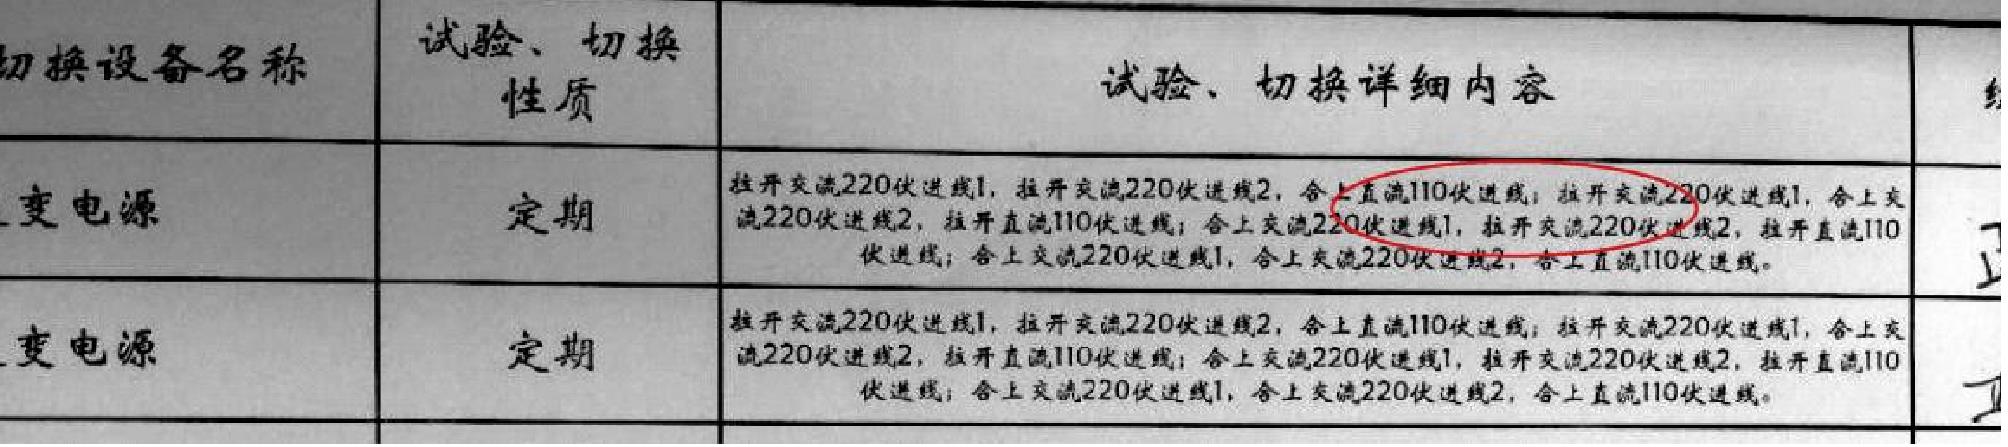 切换设备名称
试验、切换
性质
试验、切换详细内容
变电源
定期
拉开交流220伏进线1，拉开交流220伏进线2，合上直流110伏进线；拉开交流220伏进线1，合上交
流220伏进线2，拉开直流110伏进线；合上交流220伏进线1，拉开交流220伏进线2，拉开直流110
伏进线；合上交流220伏进线1，合上交流220伏进线2，合上直流110伏进线。
变电源
定期
拉开交流220伏进线1，拉开交流220伏进线2，合上直流110伏进线；拉开交流220伏进线1，合上交
流220伏进线2，拉开直流110伏进线；合上交流220伏进线1，拉开交流220伏进线2，拉开直流110
伏进线；合上交流220伏进线1，合上交流220伏进线2，合上直流110伏进线。